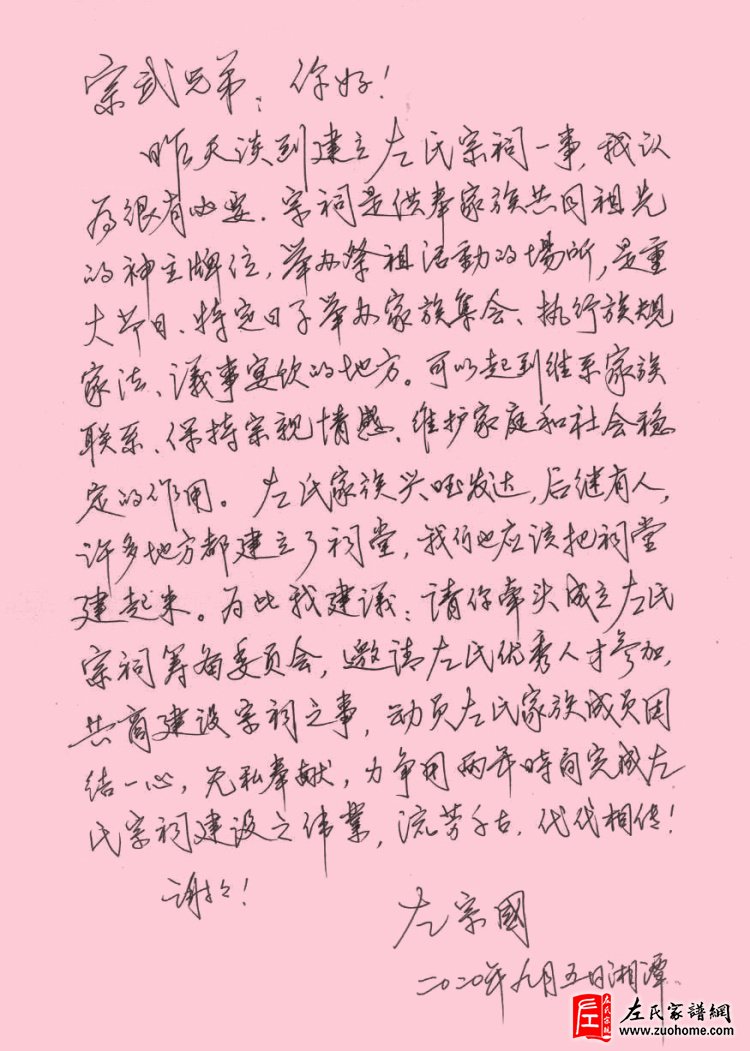 宗武兄弟：你好！
昨天谈到建立左氏宗祠一事，我认
为很有必要．宗祠是供奉家族共同祖先
的神主牌位，举办祭祖活動的場所，是重
大节日、特定日子举办家族集会、执行族规
家法、議事宴饮的地方。可以起到维系家族
联系、保持宗親情感、维护家庭和社会稳
定的作用。左氏家族兴旺发达，后继有人，
许多地方都建立了祠堂，我们也应该把祠堂
建起来。为此我建议：请你牵头成立左氏
宗祠筹备委员会，邀请左氏优秀人才参加，
共商建设宗祠之事，动员左氏家族成员团
结一心，无私奉献，力争用两年時间完成左
氏宗祠建设之伟業，流芳千古，代代相传！
谢谢！
左宗國
二〇二〇年九月五日湘潭
左氏宗親
左氏家譜網
www.zuohome.com